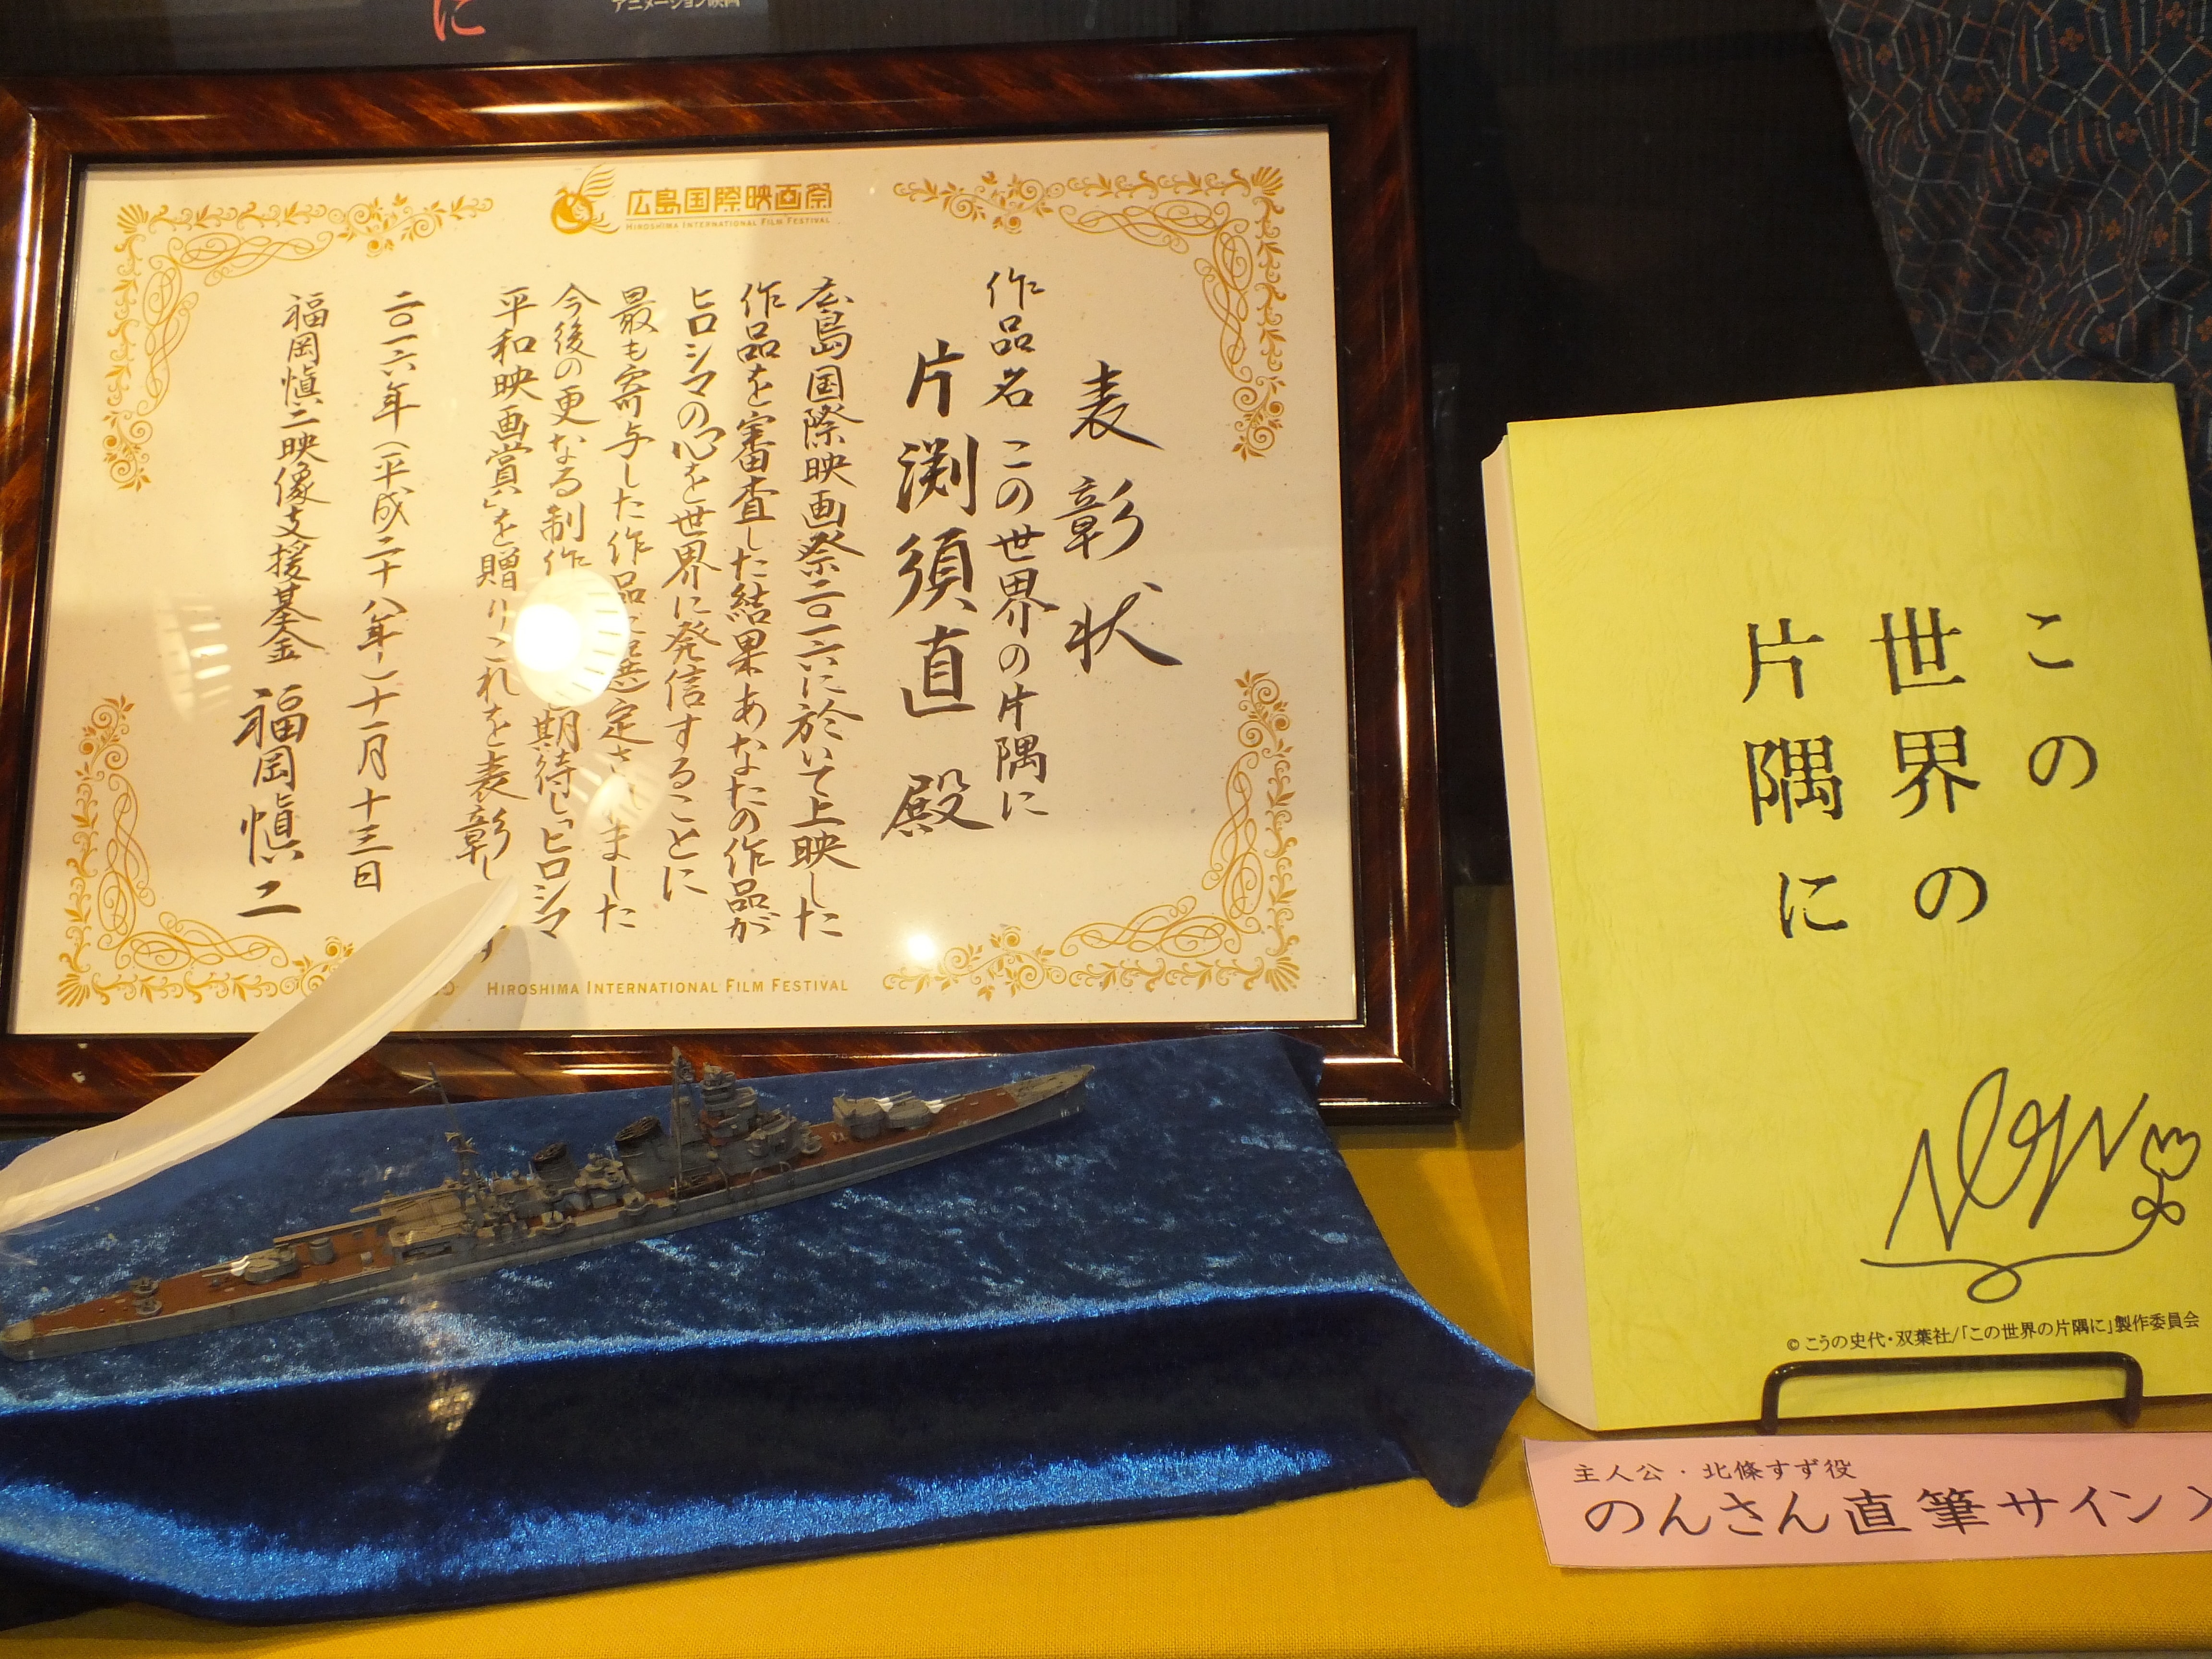 に
アニメーション映画
広島国際映画祭
HIROSHIMA INTERNATIONAL FILM FESTIVAL
表彰状
作品名 この世界の片隅に
片渕須直 殿
広島国際映画祭二〇一六に於いて上映した
作品を審査した結果あなたの作品が
ヒロシマの心を世界に発信することに
最も寄与した作品に選定されました
今後の更なる制作 期待し「ヒロシマ
平和映画賞」を贈りこれを表彰します
二〇一六年(平成二十八年)十一月十三日
福岡慎二映像支援基金 福岡慎二
HIROSHIMA INTERNATIONAL FILM FESTIVAL
この
世界の
片隅に
©こうの史代・双葉社/「この世界の片隅に」製作委員会
主人公・北條すず役
のんさん直筆サイン